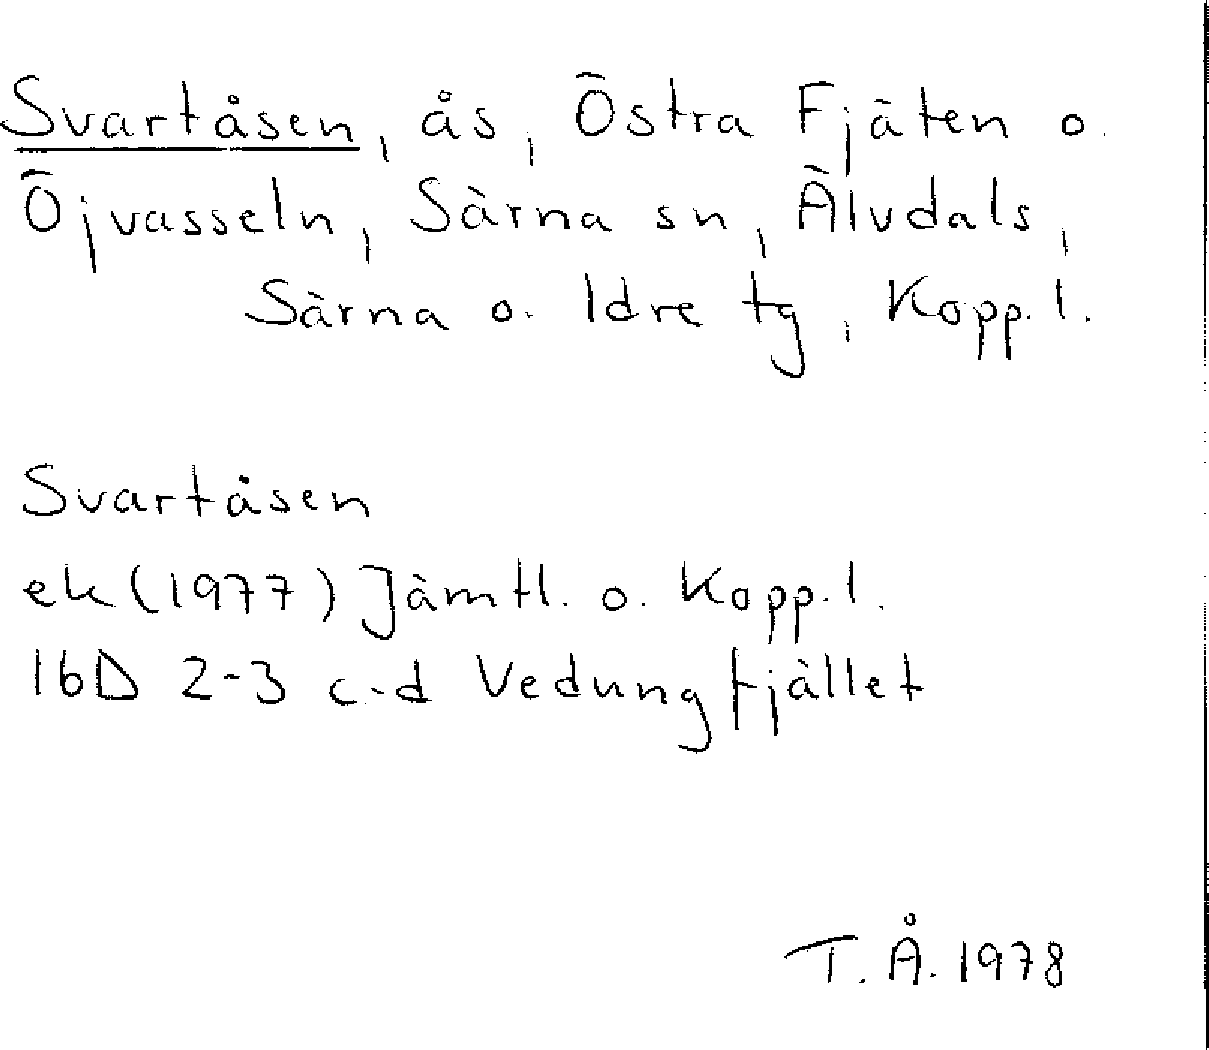 Svartåsen, ås, Östra Fjäten o.
Öjvasseln, Särna sn, Älvdals,
Särna o. Idre tg, Kopp. l.
Svartåsen
ek (1977) Jämtl. o. Kopp. l.
16D 2-3 c-d Vedungfjället
T. Å. 1978